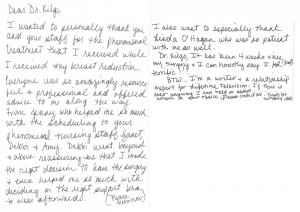 Dear Dr. Kilgo,
I wanted to personally thank you
and your staff for the phenomenal
treatment that I received while
I received my breast reduction.
Everyone was so amazingly resource-
ful & professional and offered
advice to me along the way.
From Jenny who helped me so much
with the scheduling to your
phenomenal nursing staff Janet
Debbi & Amy. Debbi went beyond
& above reassuring me that I made
the right decision to have the surgery
& even helped me so much with
deciding on the right support bra
to wear afterwards.
I also want to especially thank
Linda O'Hagan who was so patient
with me as well.
Dr. Kilgo, It has been 4 weeks since
my surgery & I can honestly say I feel
terrific!
BTW I'm a writer & a relationship
expert for Lifetime Television. If there is
ever anything I can help or assist
please contact me. Thanks for